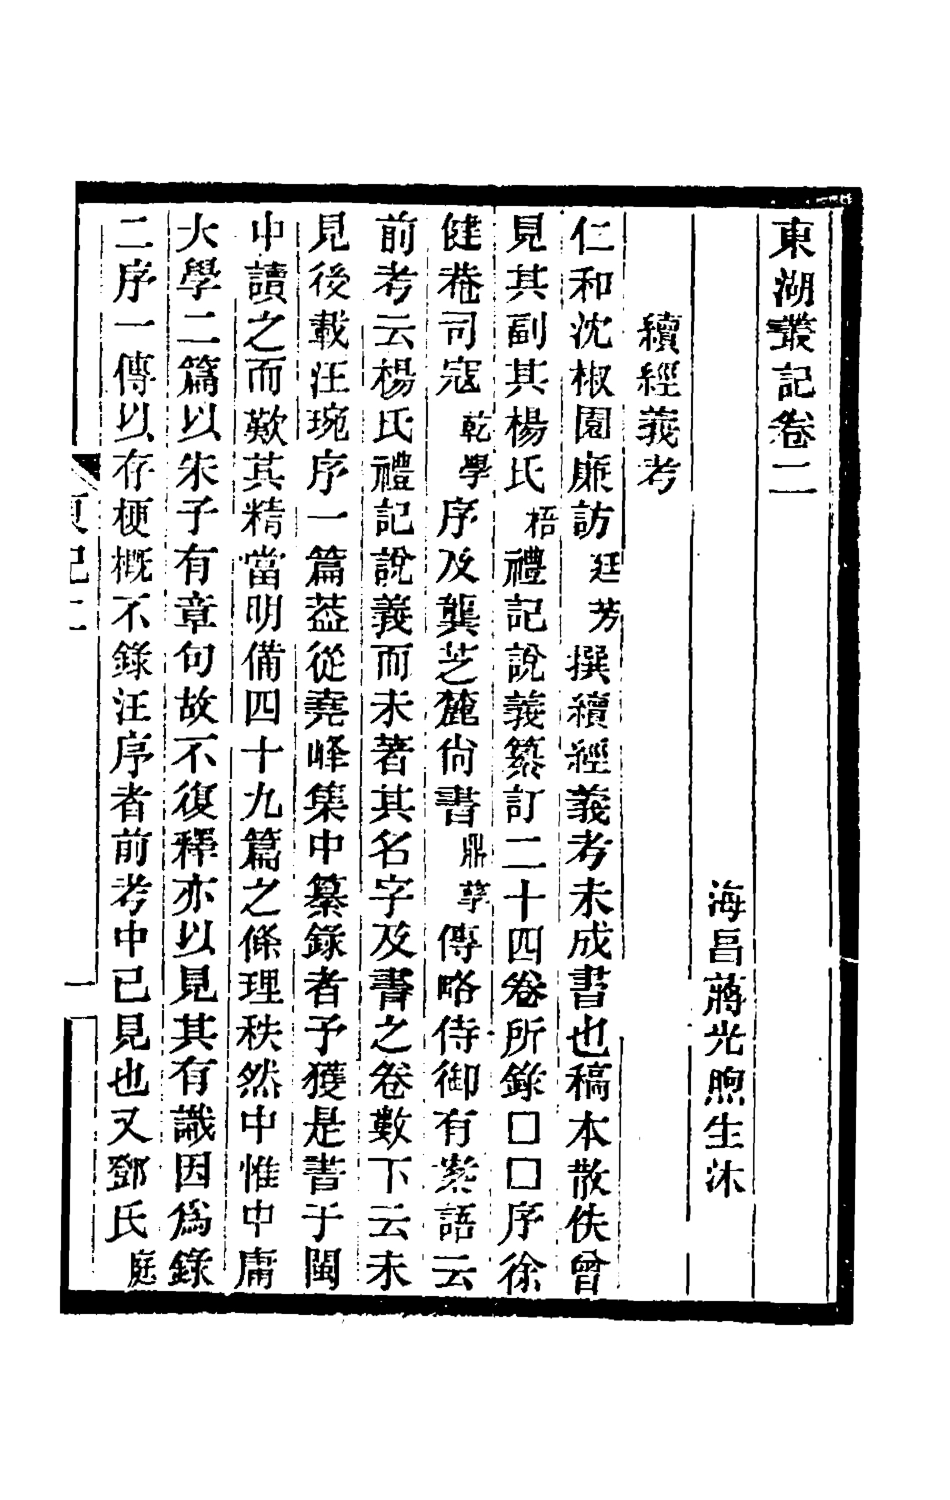 東湖叢記卷二
海昌蔣光煦生沐
續經義考
仁和沈椒園廉訪廷芳撰續經義考未成書也稿本散佚曾
見其副其楊氏梧禮記說義纂訂二十四卷所錄囗囗序徐
健菴司寇乾學序及龔芝麓尙書鼎孳傳略侍御有案語云
前考云楊氏禮記說義而未著其名字及書之卷數下云未
見後載汪琬序一篇葢從堯峰集中纂錄者予獲是書于閩
中讀之而歎其精當明備四十九篇之條理秩然中惟中庸
大學二篇以朱子有章句故不復釋亦以見其有識因爲錄
二序一傳以存梗概不錄汪序者前考中已見也又鄧氏庭
東記二
一